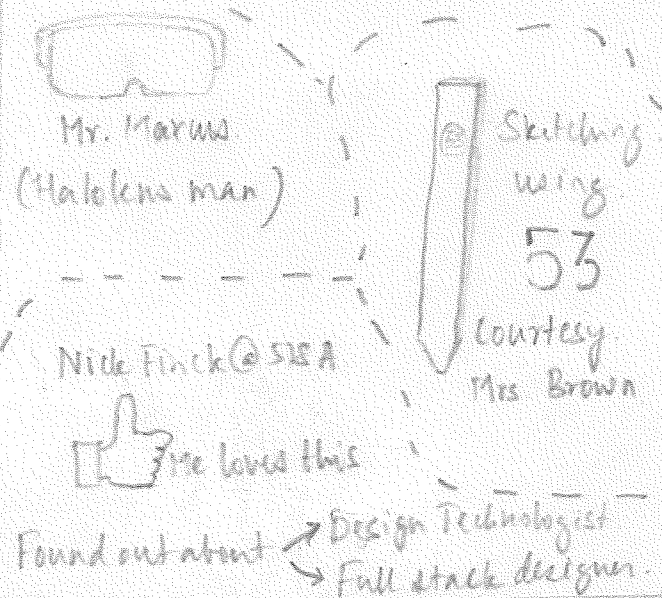 Mr. Marcus
(Hololens man)
Sketching
using
53
Courtesy
Mrs Brown
Nick Finck @
Me loves this
Found out about
Design Technologist
Full stack designer.